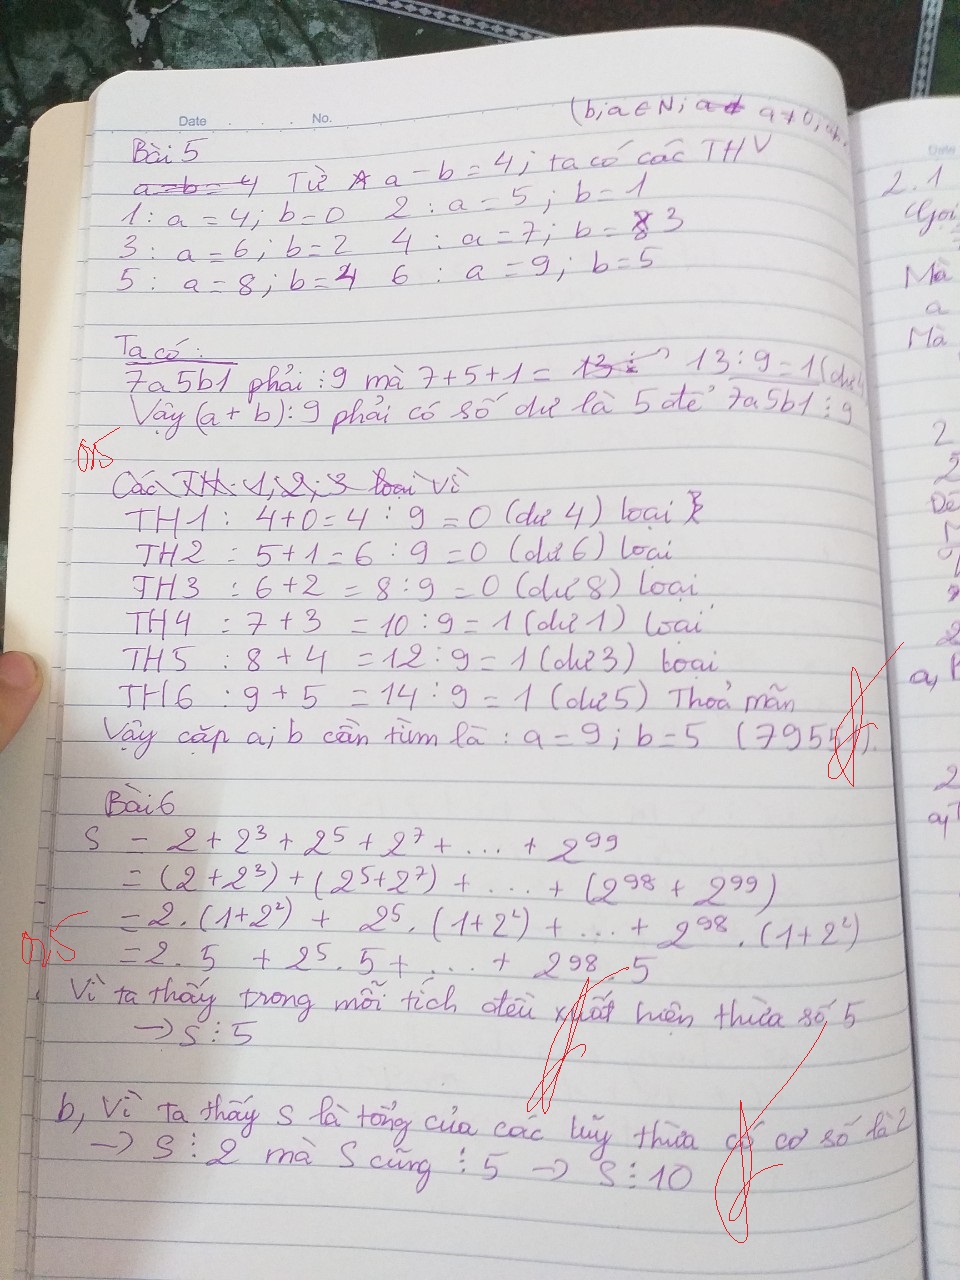 Date No.
(b,a ∈ N; a ≠ 0;
Bài 5
a-b=4 Từ a - b = 4; ta có các TH
1: a = 4; b = 0 2: a = 5; b = 1
3: a = 6; b = 2 4: a = 7; b = 3
5: a = 8; b = 4 6: a = 9; b = 5
Ta có:
7a5b1 phải ⋮ 9 mà 7+5+1 = 13 : 13 : 9 = 1 (dư 4
Vậy (a+b) : 9 phải có số dư là 5 để 7a5b1 ⋮ 9
0,5
Các TH 1; 2; 3 loại vì
TH1 : 4+0=4 : 9 = 0 (dư 4) loại
TH2 : 5+1=6 : 9 = 0 (dư 6) loại
TH3 : 6+2 = 8 : 9 = 0 (dư 8) loại
TH4 : 7+3 = 10 : 9 = 1 (dư 1) loại
TH5 : 8+4 = 12 : 9 = 1 (dư 3) loại
TH6 : 9+5 = 14 : 9 = 1 (dư 5) Thoả mãn
Vậy cặp a; b cần tìm là : a = 9; b = 5 (7955
Bài 6
S = 2 + 2³ + 2⁵ + 2⁷ + ... + 2⁹⁹
= (2+2³) + (2⁵+2⁷) + ... + (2⁹⁸ + 2⁹⁹)
= 2.(1+2²) + 2⁵.(1+2²) + ... + 2⁹⁸.(1+2²)
0,5
= 2.5 + 2⁵.5 + ... + 2⁹⁸.5
Vì ta thấy trong mỗi tích đều xuất hiện thừa số 5
→ S ⋮ 5
b, Vì ta thấy S là tổng của các luỹ thừa có cơ số là 2
→ S ⋮ 2 mà S cũng ⋮ 5 → S ⋮ 10
Date
2.1
(Gọi
Mà
a
Mà
2
a,
2
a,